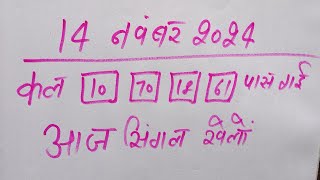 14 नवंबर 2024
कल 10 70 18 61 पास गई
आज सिंगल खेलों